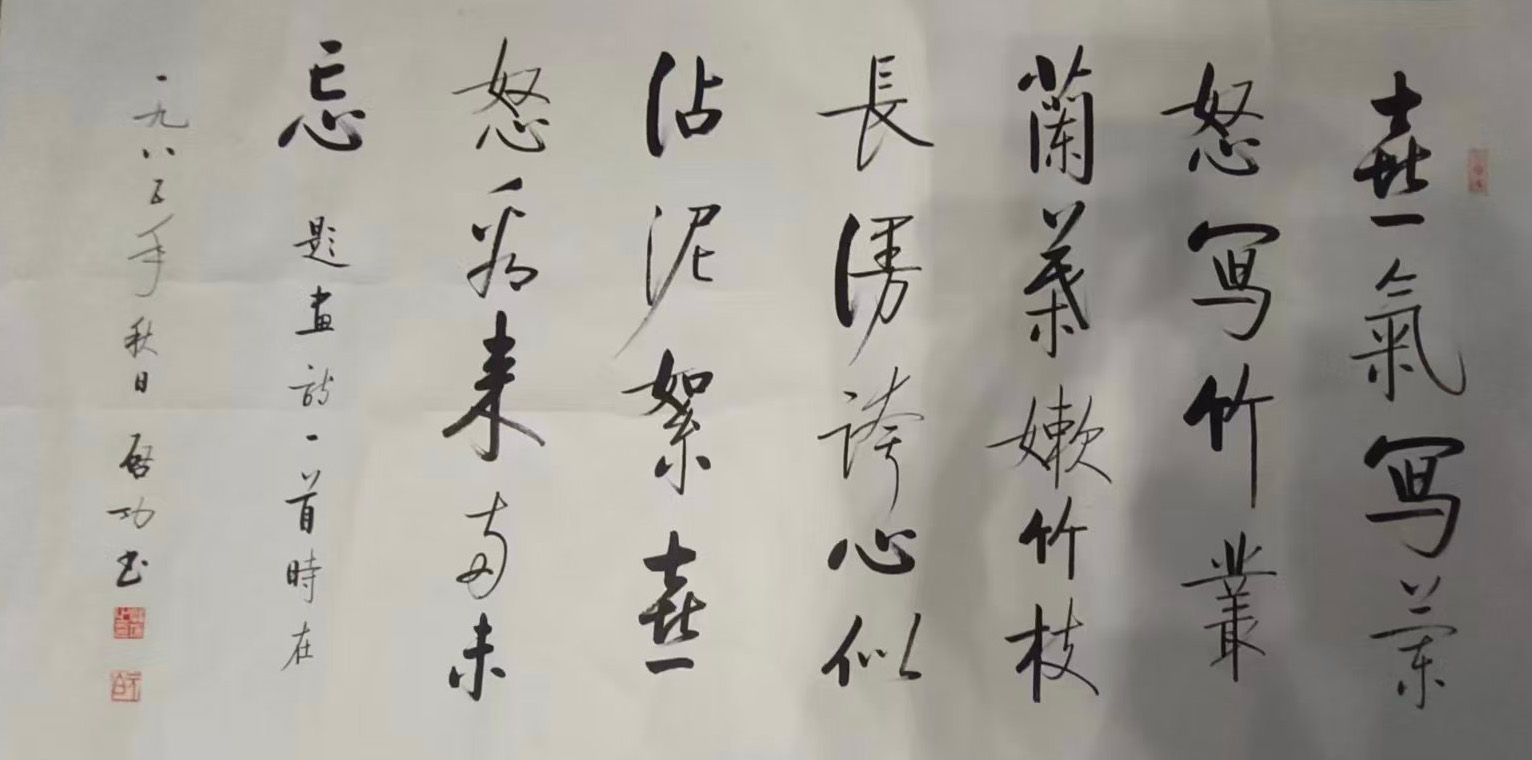 喜氣寫蘭
怒寫竹叢
蘭葉嫩竹枝
長漫誇心似
沾泥絮喜
怒看来兩未
忘 題畫詩一首時在
一九八五年秋日 啓功書
元白